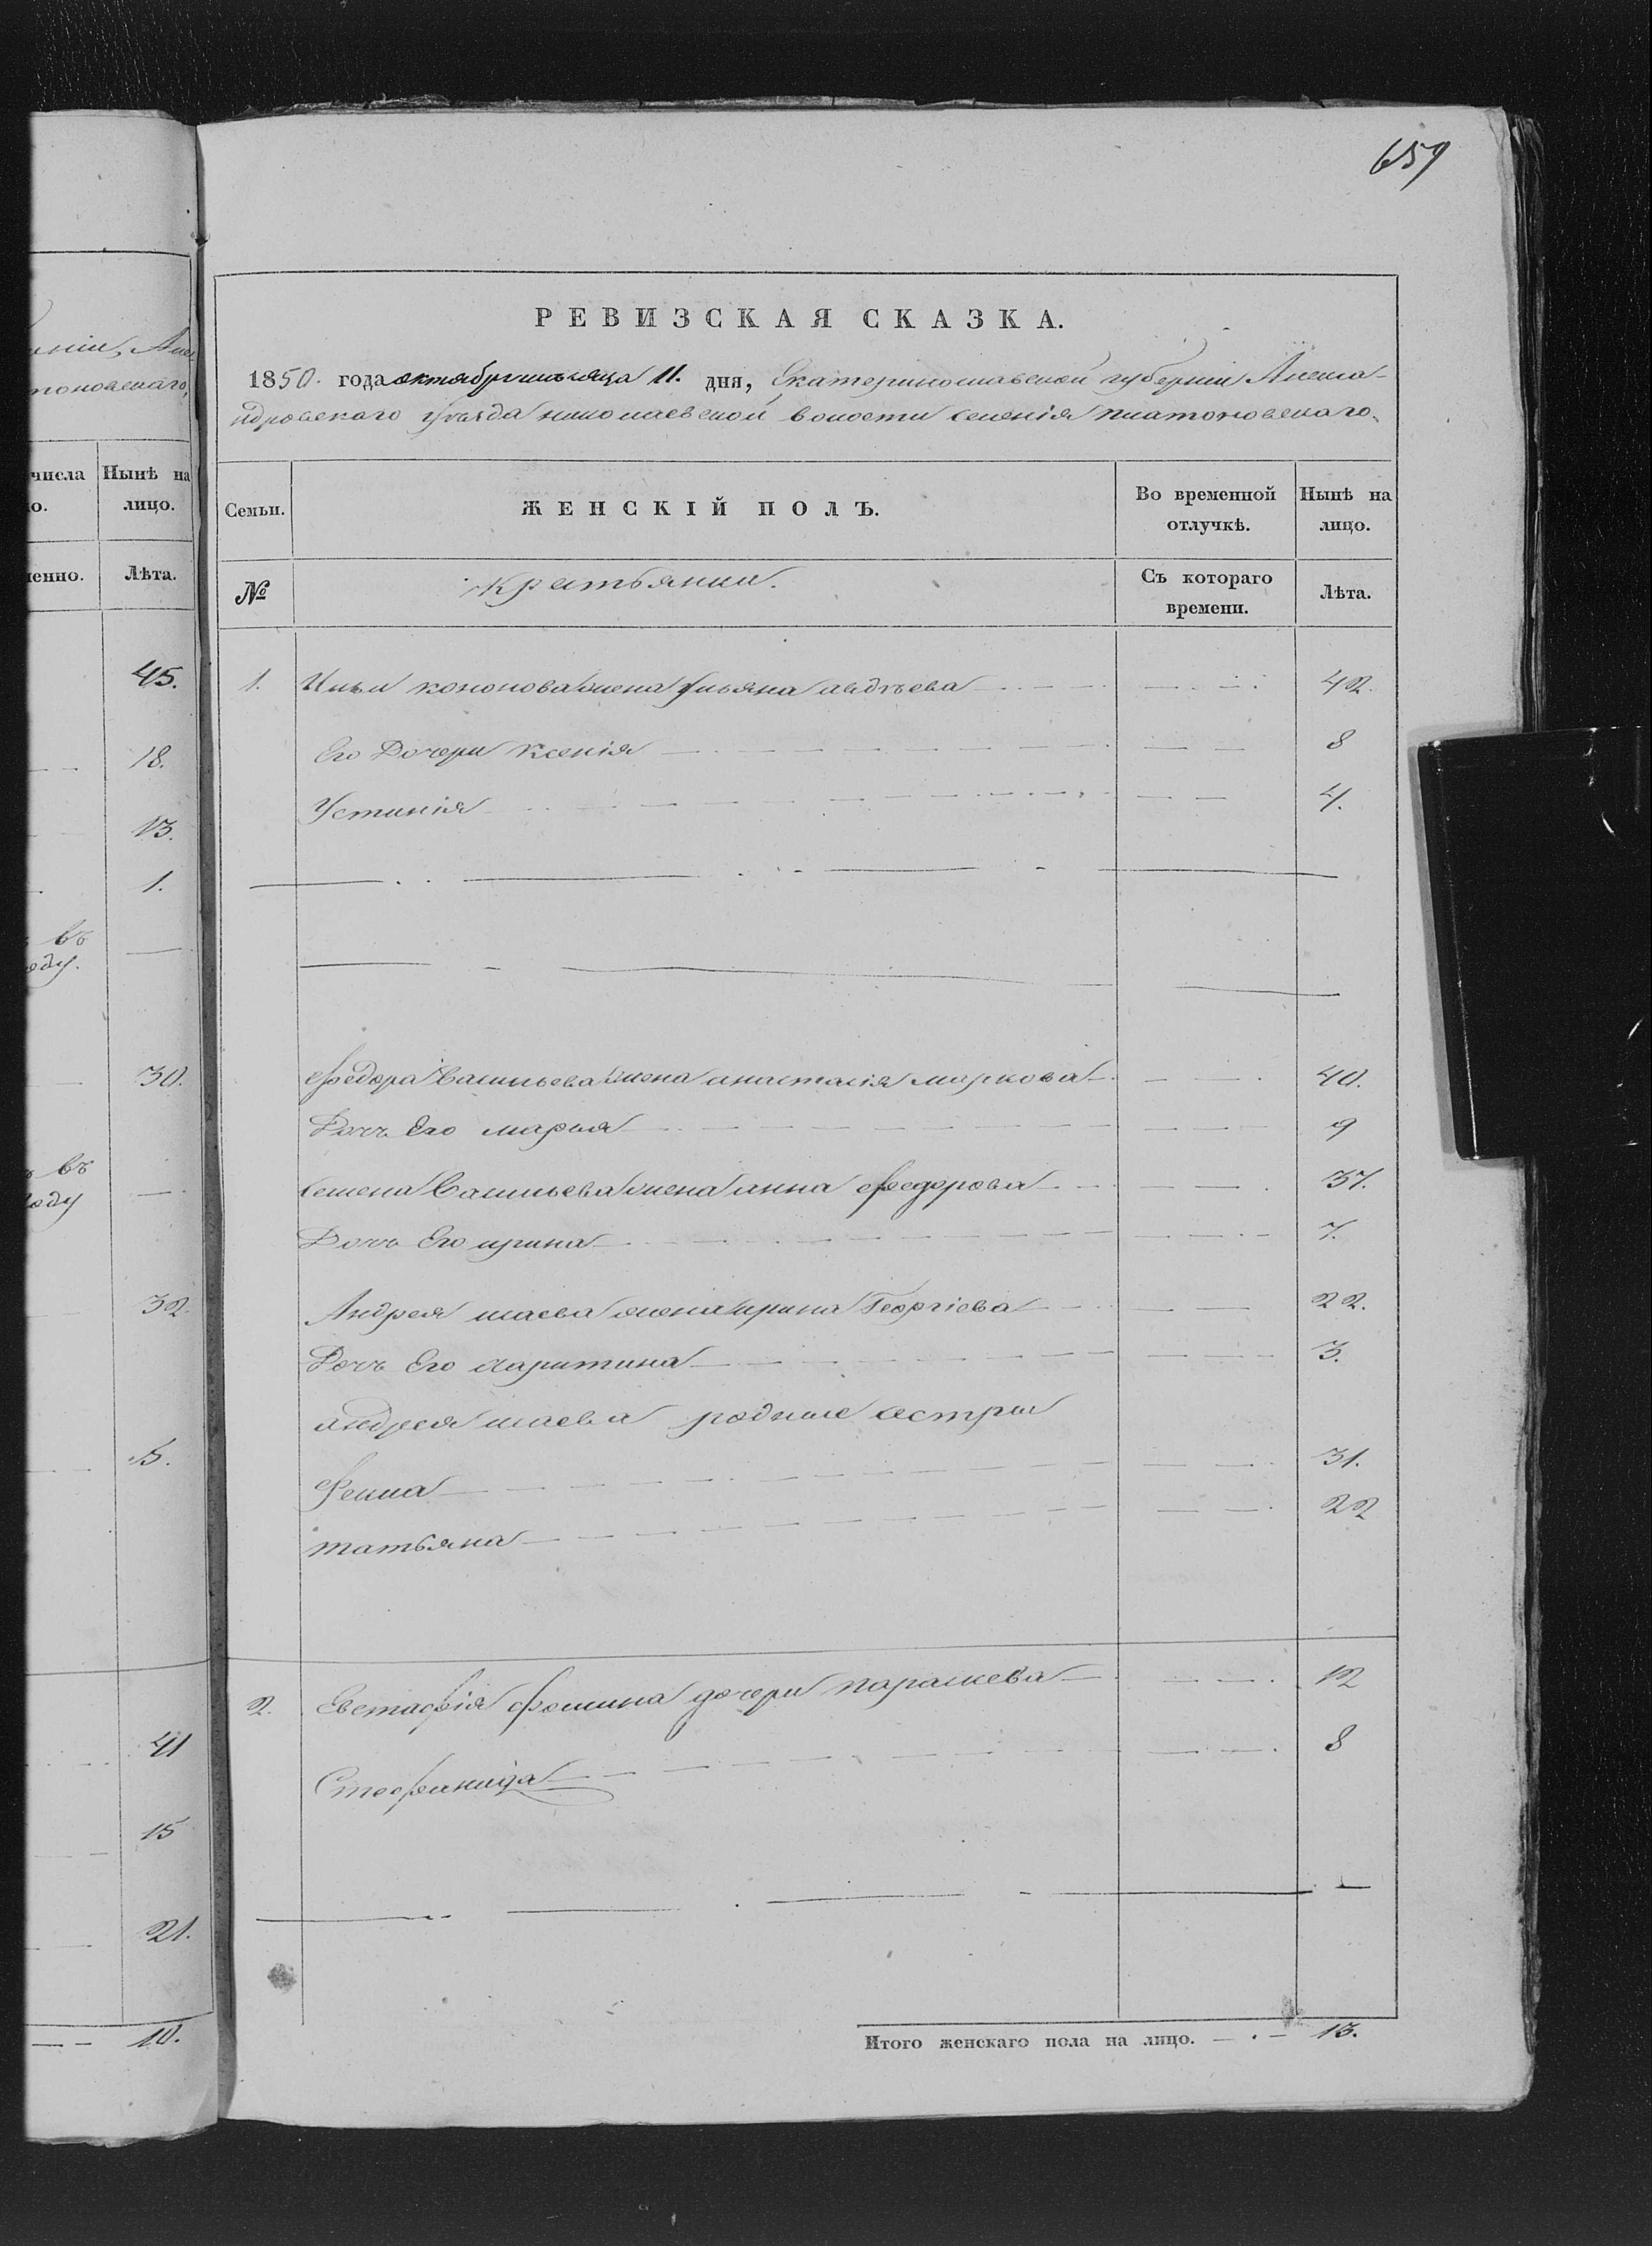 659
РЕВИЗСКАЯ СКАЗКА.
1850. года октября месяца 11. дня, Екатеринославской губерніи Алекса-
ндровскаго уѣзда николаевской волости селенія платоновскаго.
числа
Нынѣ на лицо.
Семьи.
ЖЕНСКІЙ ПОЛЪ.
Во временной отлучкѣ.
Нынѣ на лицо.
Лѣта.
№
Крестьянки.
Съ котораго времени.
Лѣта.
45.
18.
13.
1.
въ
30.
въ
32
5.
41
15
21.
10.
1. кононова жена ульяна авдѣева 42.
Его Дочери Ксенія 8
Устинія 4.
Федора Васильева жена анастасія маркова 40.
Дочь Его марья 9
семена Васильева жена анна федорова 37.
Дочь Его ирина 7.
Андрея исаева жена ирина Георгіева 22.
Дочь Его харитина 3.
андрея исаева родные сестры
31.
татьяна 22
2. Евстафія фомина дочери параскева 12
Стефанида 8
Итого женскаго пола на лицо. 13.